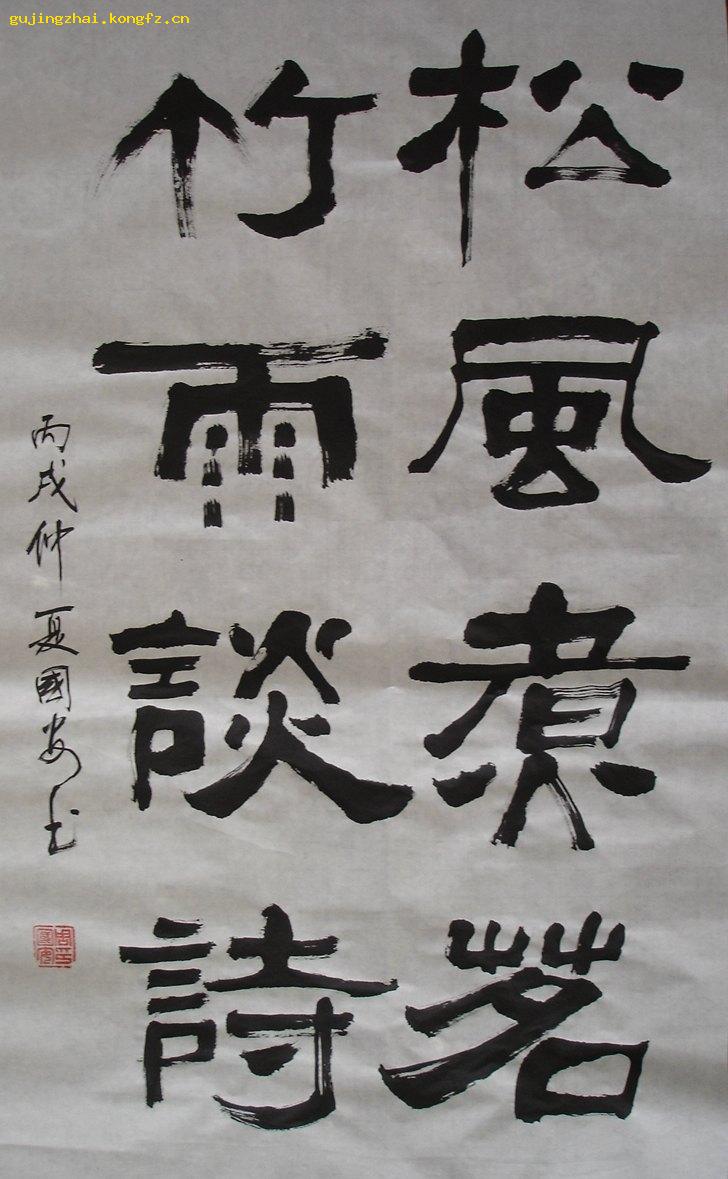 gujingzhai.kongfz.cn
松風煮茗
竹雨談詩
丙戌仲夏國安书